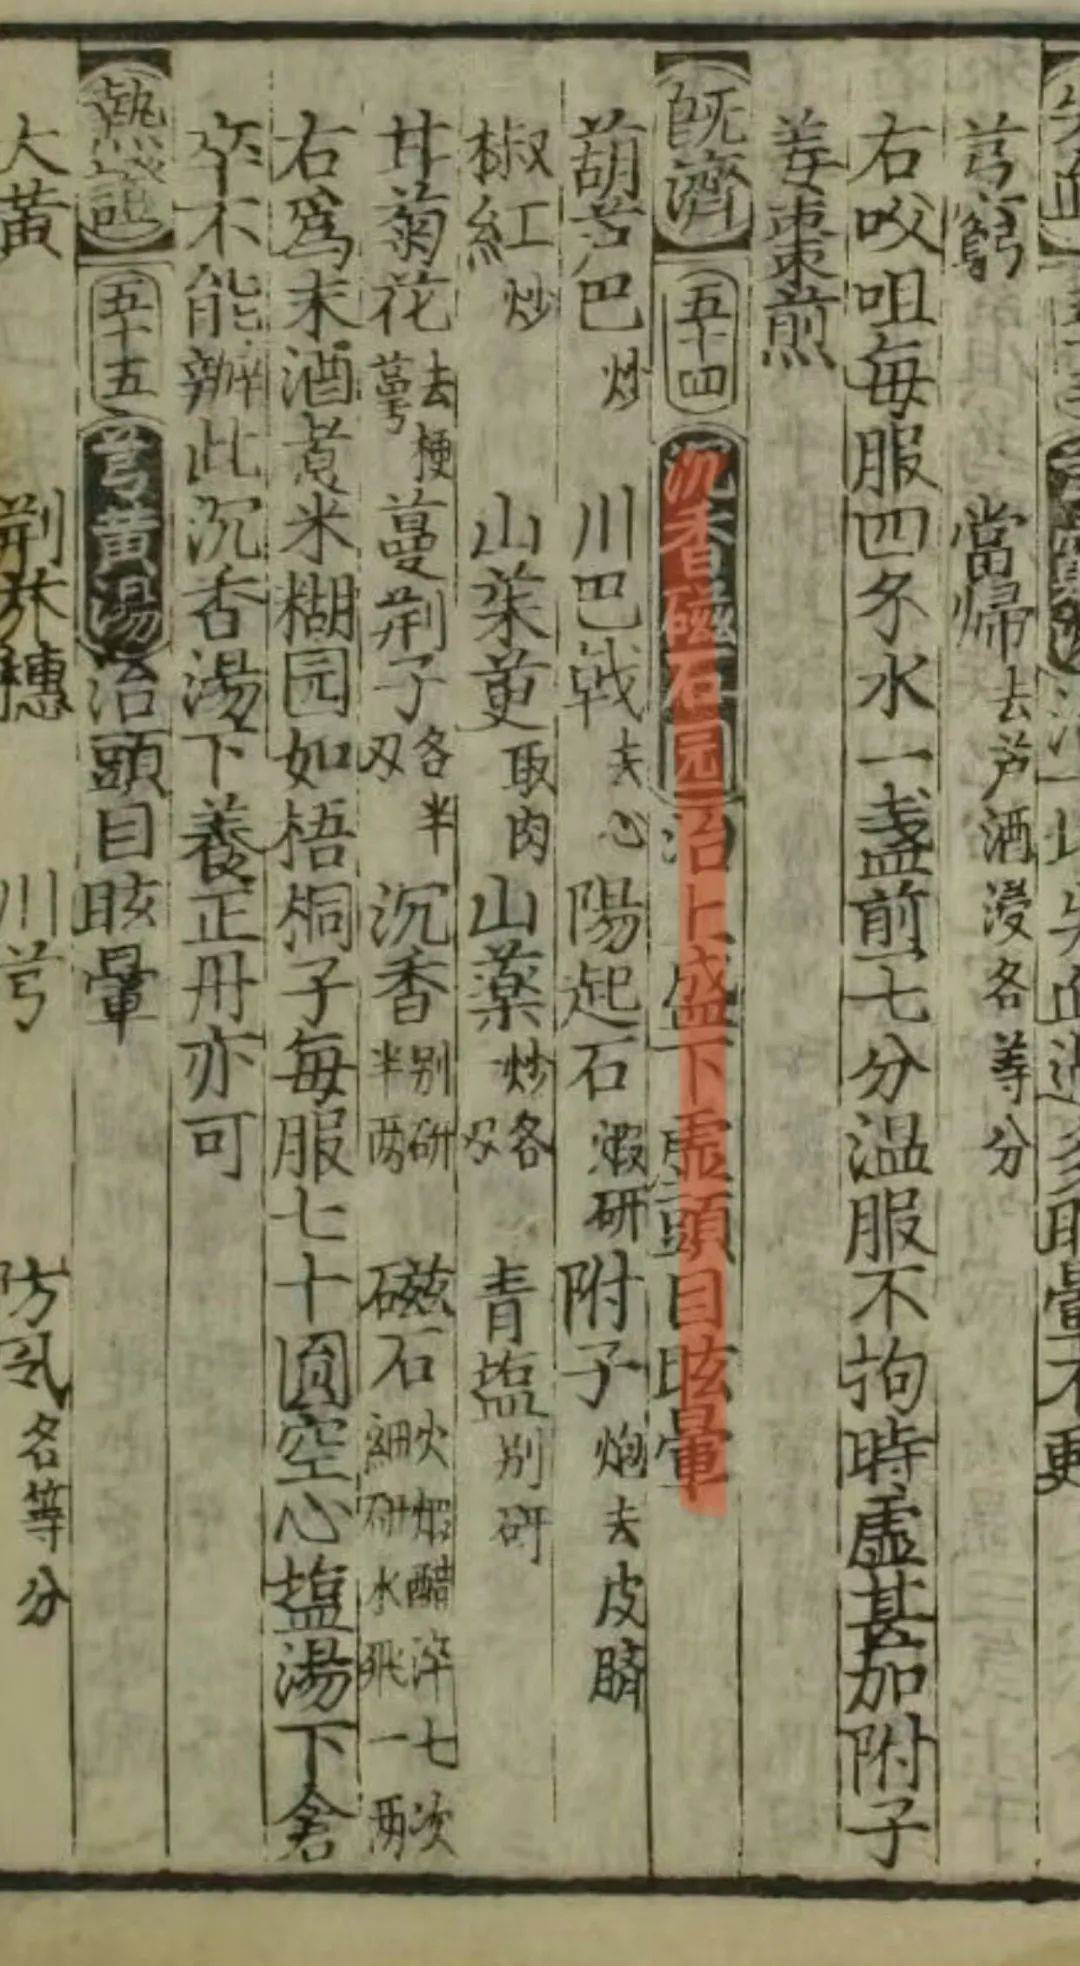 芎藭 當歸去芦酒浸各等分
右㕮咀每服四夕水一盞煎七分温服不拘時虚甚加附子
姜棗煎
既濟 五十四 沉香磁石园 治上盛下虚頭目眩暈
葫芦巴炒 川巴戟去心 陽起石煅研 附子炮去皮臍
椒紅炒 山茱萸取肉 山藥炒各刄 青塩别研
甘菊花去梗萼 蔓荆子各半刄 沉香别研半两 磁石火煅醋淬七次細研水飛一两
右爲末酒煮米糊园如梧桐子每服七十圓空心塩湯下倉
卒不能辦此沉香湯下養正丹亦可
熱證 五十五 芎黄湯 治頭目眩暈
大黄 荆芥穗 川芎 防风各等分